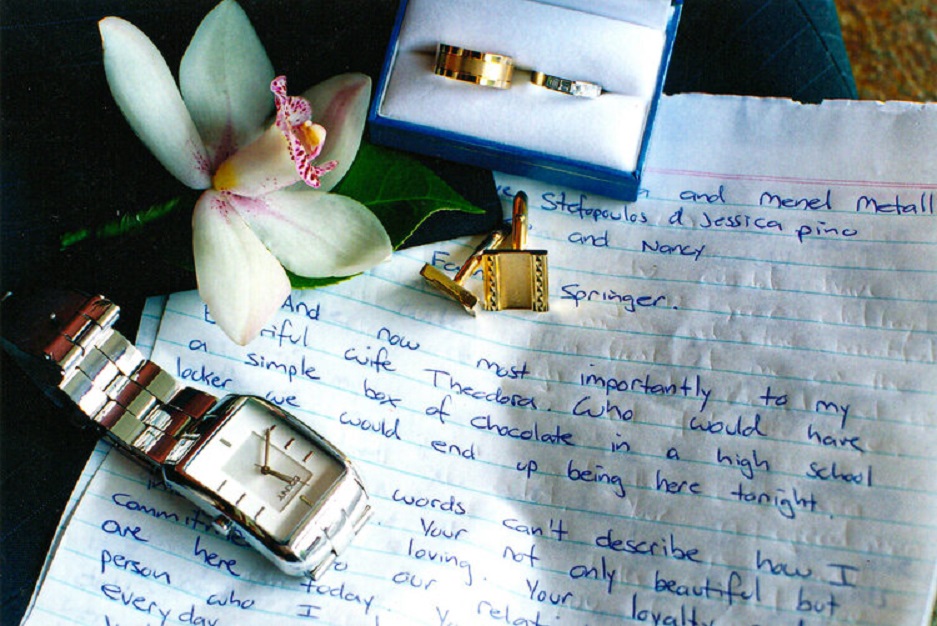 and Menel Metall
Stefopoulos & Jessica pino
and Nancy
Springer.
And now most importantly to my
wife Theodora. Who would have
a simple box of chocolate in a high school
locker we would end up being here tonight.
words can't describe how I
Your not only beautiful but
loving. Your loyalty
our
are here today.
person who I
every day